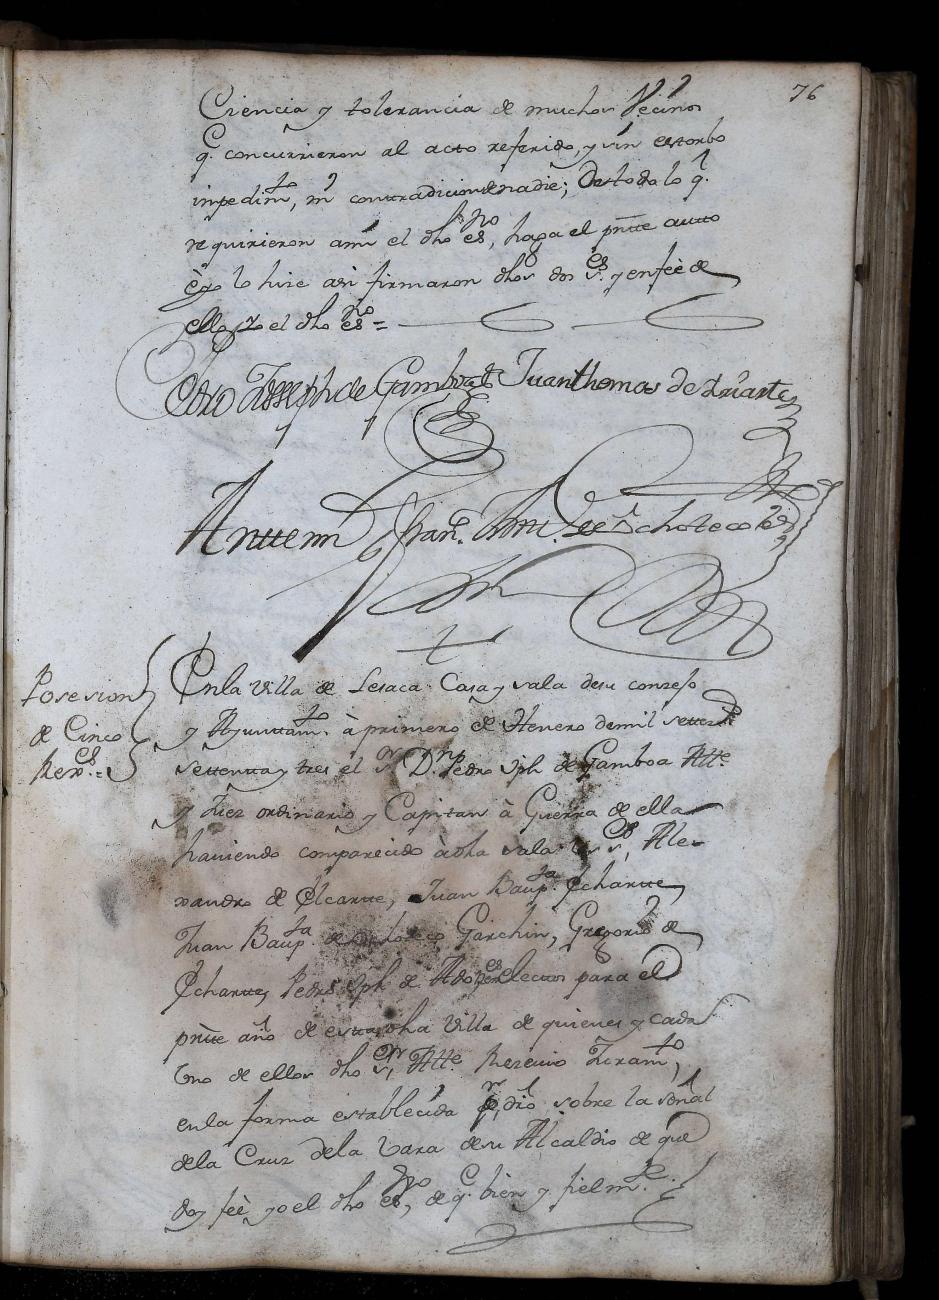 76
Ciencia y tolerancia de muchos Vecinos
q. concurrieron al acto referido, y sin estorbo
impedim.to, ni contradicion de nadie; De todo lo q.
requirieron ami el dho es.no, haga el pnte autto
è yo lo hice asi firmaron dhos dos s.es y en feè de
ello yo el dho es.no =
Pedro Joseph de Gamboa Juan thomas de Iriarte
Antemi Fran.co Ant.o de
Posesion
de Cinco
Rex.es =
En la Villa de Lesaca Casa y sala de su consejo
y Ayunttam.to à primero de Henero de mil settez.os
settenta y tres el S.r D.n Pedro Jph de Gamboa Alt.e
y Juez ordinario y Capitan à Guerra de ella
haviendo comparecido à dha sala los s.es Ale-
xandro de Elcarte, Juan Baup.ta Echartte,
Juan Baup.ta de Garchin, Gregorio de
Echartte, Pedro Jph de electos para el
pntte año de estta dha Villa de quienes y cada
Uno de ellos dho S.r Alt.e Recivio Juram.to,
en la forma establecida p.r dro, sobre la señal
de la Cruz de la Vara de su Alcaldio de que
doy feè yo el dho es.no, de q.e bien y fielm.te